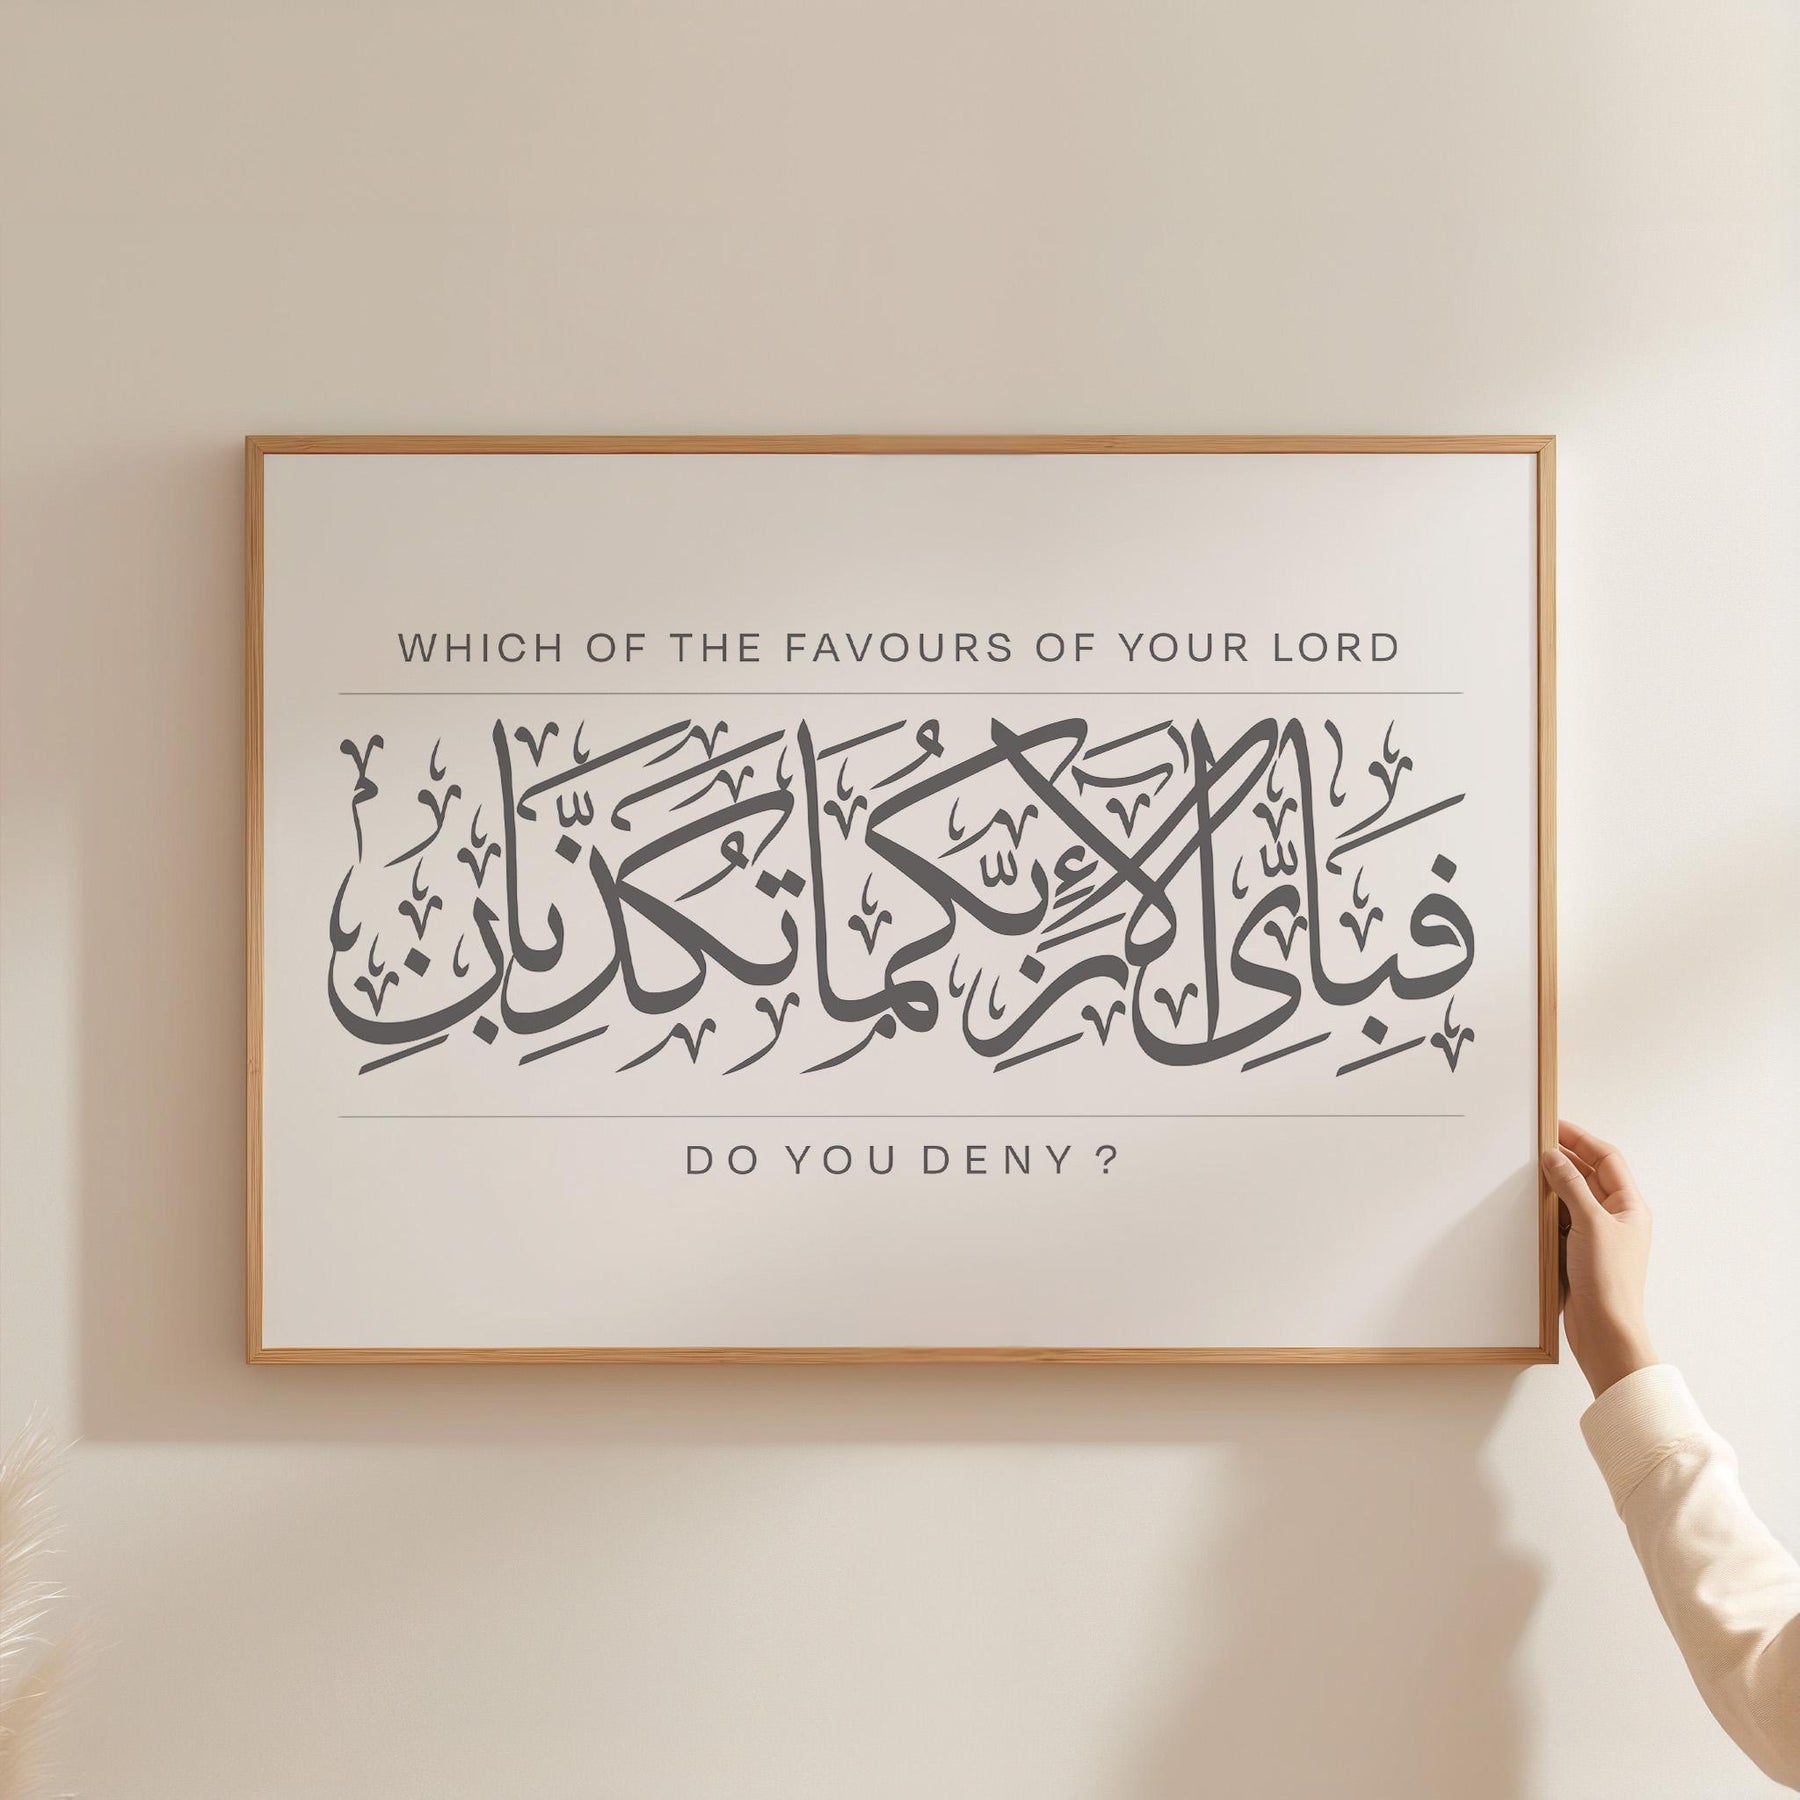 WHICH OF THE FAVOURS OF YOUR LORD
فَبِأَيِّ آلَاءِ رَبِّكُمَا تُكَذِّبَانِ
DO YOU DENY ?